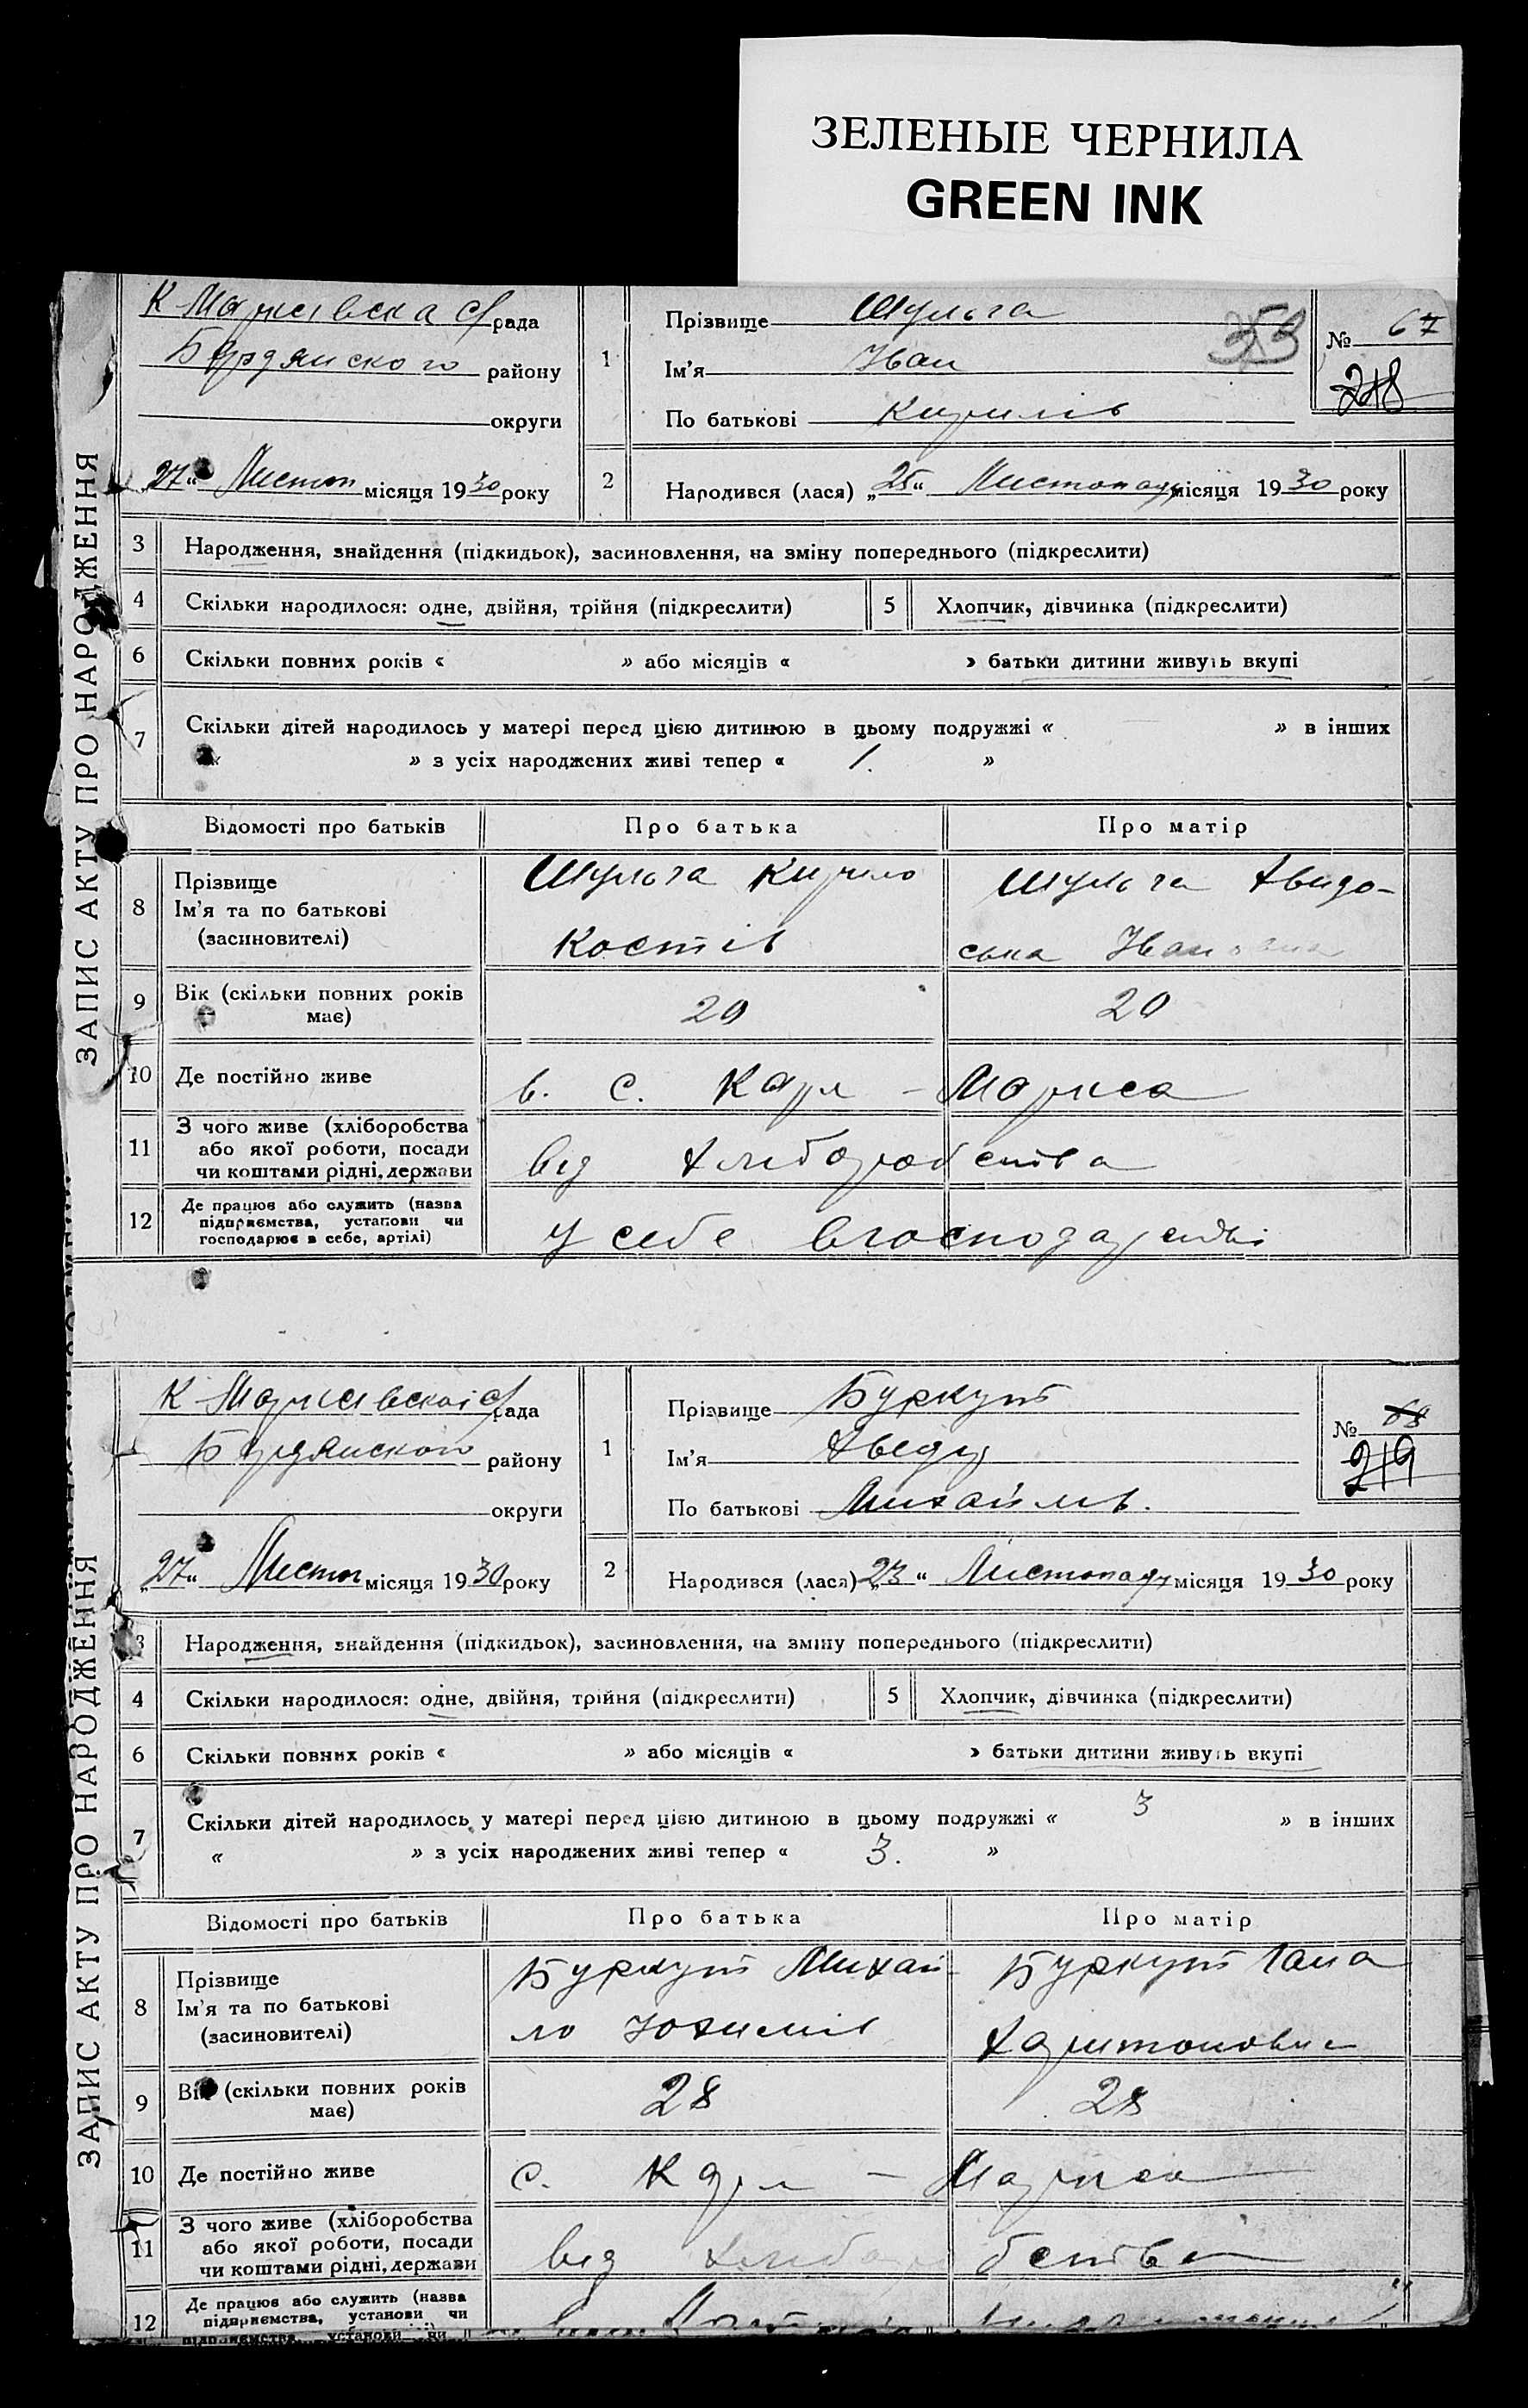 ЗЕЛЕНЫЕ ЧЕРНИЛА
GREEN INK
ЗАПИС АКТУ ПРО НАРОДЖЕННЯ
К-Марксівска с/рада
Бердянского району
округи
„27“ Листоп місяця 1930 року
1
Прізвище Шульга
Ім'я Іван
По батькові Кирилів
353
№ 67
218
2
Народився (лася) „25“ Листопаду місяця 1930 року
3 Народження, знайдення (підкидьок), засиновлення, на зміну попереднього (підкреслити)
4 Скільки народилося: одне, двійня, трійня (підкреслити) 5 Хлопчик, дівчинка (підкреслити)
6 Скільки повних років « » або місяців « » батьки дитини живуть вкупі
7 Скільки дітей народилось у матері перед цією дитиною в цьому подружжі « » в інших
« » з усіх народжених живі тепер « 1. »
Відомості про батьків Про батька Про матір
8 Прізвище
Ім'я та по батькові
(засиновителі)
Шульга Кирило
Костів
Шульга Авидо-
ська Іванівна
9 Вік (скільки повних років
має)
20
10 Де постійно живе в. с. Карл - Маркса
11 З чого живе (хліборобства
або якої роботи, посади
чи коштами рідні, держави
від хліборобства
12 Де працює або служить (назва
підприємства, установи чи
господарює в себе, артілі)
У себе в господарстві
ЗАПИС АКТУ ПРО НАРОДЖЕННЯ
К-Марксівскоі с/рада
Бердянского району
округи
„27“ Листоп місяця 1930 року
1
Прізвище Буркут
Ім'я
По батькові Михайлів.
№ 68
219
2
Народився (лася) „23“ Листопаду місяця 1930 року
3 Народження, знайдення (підкидьок), засиновлення, на зміну попереднього (підкреслити)
4 Скільки народилося: одне, двійня, трійня (підкреслити) 5 Хлопчик, дівчинка (підкреслити)
6 Скільки повних років « » або місяців « » батьки дитини живуть вкупі
7 Скільки дітей народилось у матері перед цією дитиною в цьому подружжі « 3 » в інших
« » з усіх народжених живі тепер « 3. »
Відомості про батьків Про батька Про матір
8 Прізвище
Ім'я та по батькові
(засиновителі)
Буркут Михай-
ло Юхимів
Буркут Гана
Харитоновна
9 Вік (скільки повних років
має)
28 28
10 Де постійно живе с. Карл - Маркса
11 З чого живе (хліборобства
або якої роботи, посади
чи коштами рідні, держави
від хліборобства
12 Де працює або служить (назва
підприємства, установи чи